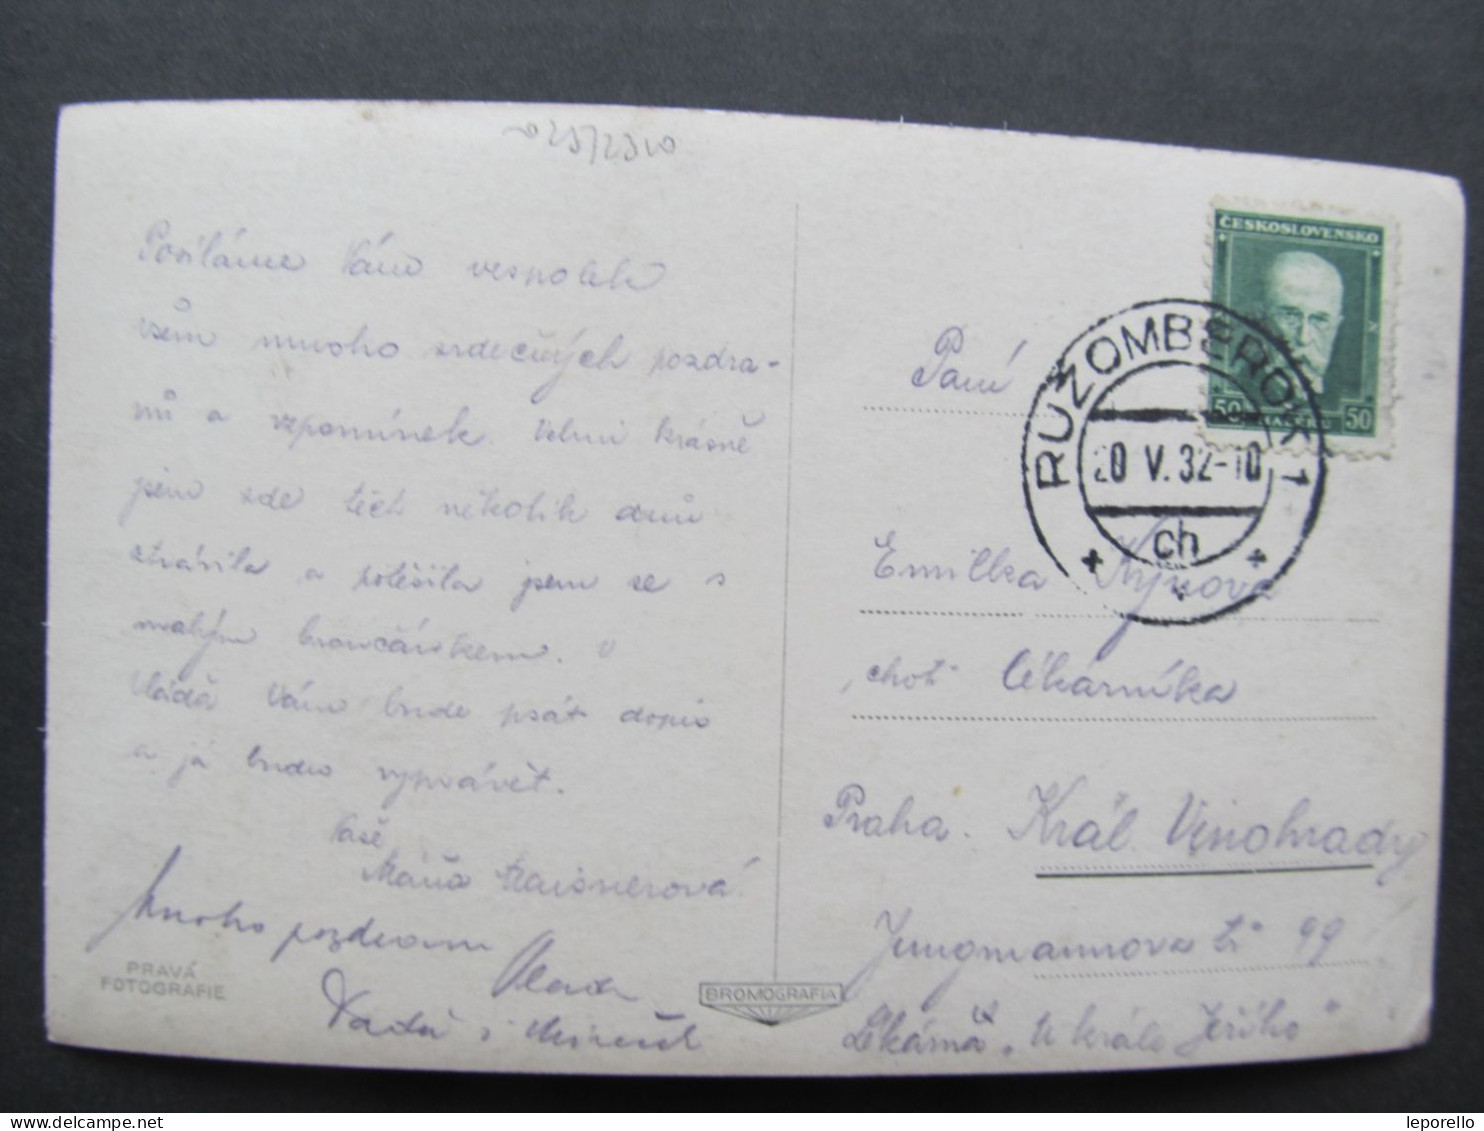 Posíláme Vám vespolek
všem mnoho srdečných pozdra-
vů a vzpomínek. Velmi krásně
jsem zde těch několik dnů
strávila a potěšila jsem se s
malým broučáskem.
Vláďa Vám bude psát dopis
a já budu vyprávět.
Vaše
Máňa
Mnoho pozdravů
PRAVÁ
FOTOGRAFIE
BROMOGRAFIA
ČESKOSLOVENSKO
50 50
RUŽOMBEROK 1
20 V. 32-10
ch
Paní
Emilka
choť lékárníka
Praha. Král. Vinohrady
Jungmannova tř. 99
Lékárna „U krále Jiřího"
leporello